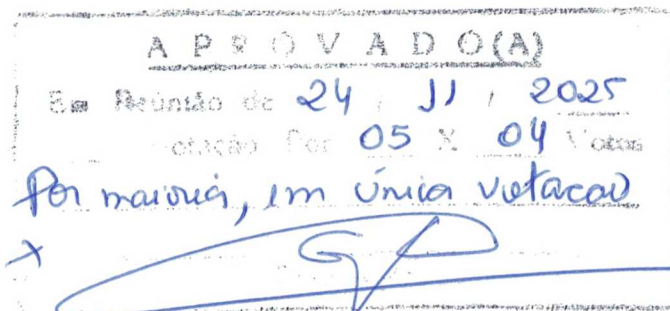 APROVADO(A)
Em Reunião de 24 / 11 / 2025
otação Por 05 X 04 Votos
Por maioria, em única votacao
X